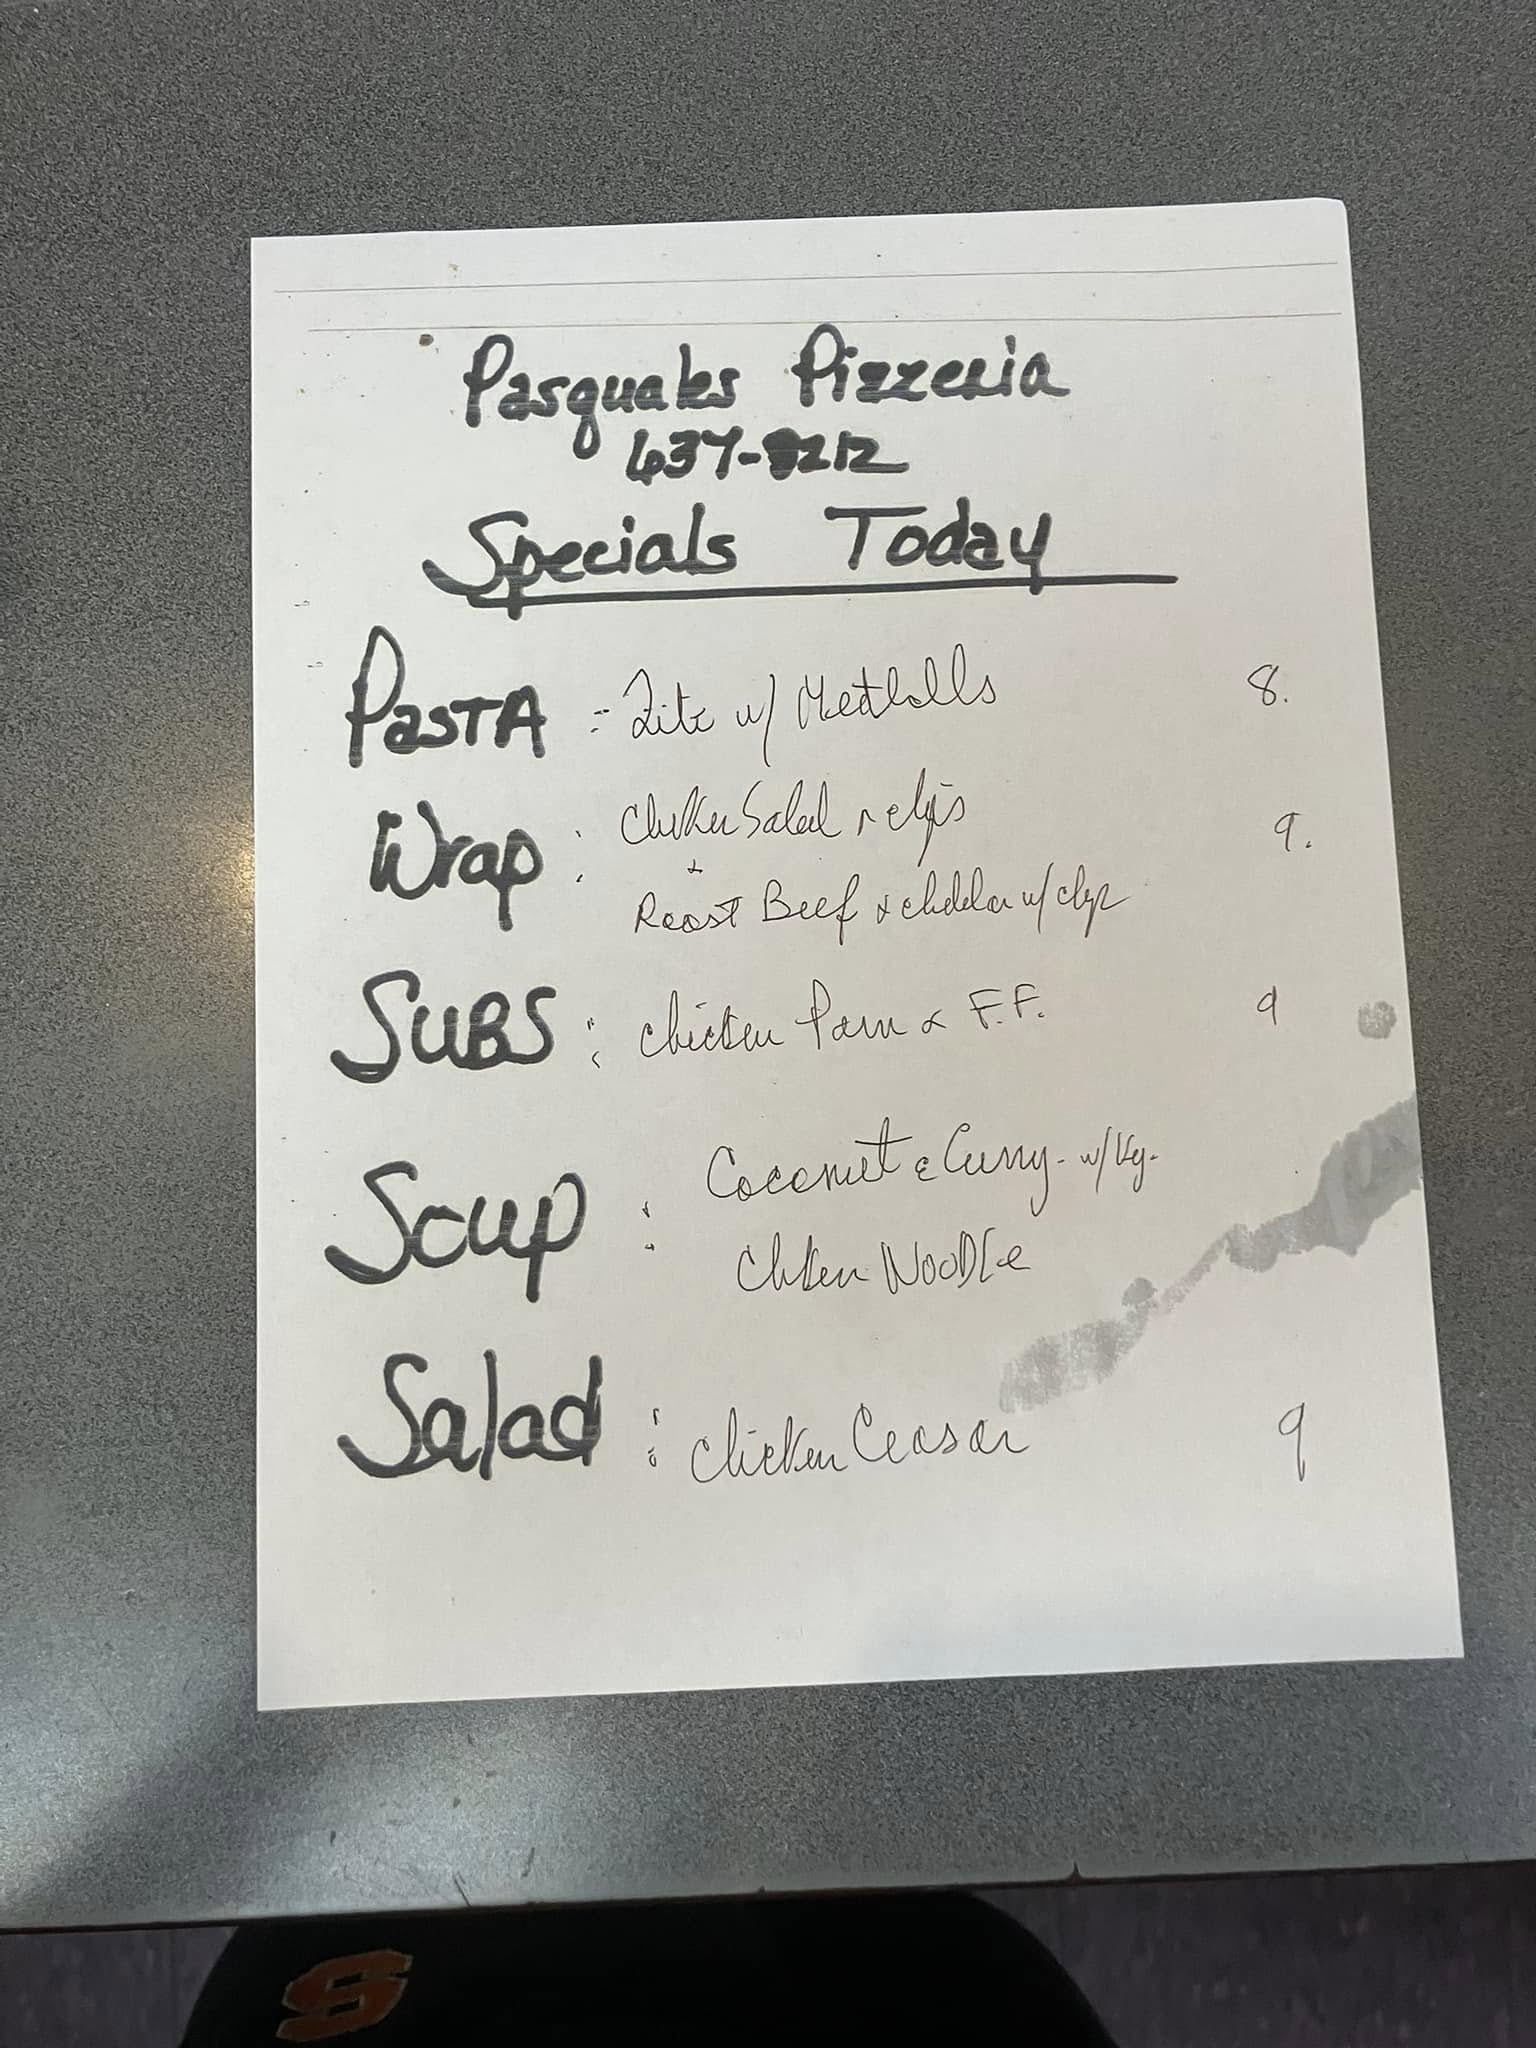 Pasquales Pizzeria
637-8212
Specials Today
PASTA : Ziti w/ Meatballs 8.
Wrap : Chicken Salad & chips 9.
+
Roast Beef & cheddar w/ chips
SUBS : Chicken Parm & F.F. 9
Soup : Coconut & Curry - w/ Vg.
Chicken NOODLe
Salad : Chicken Ceasar 9
S